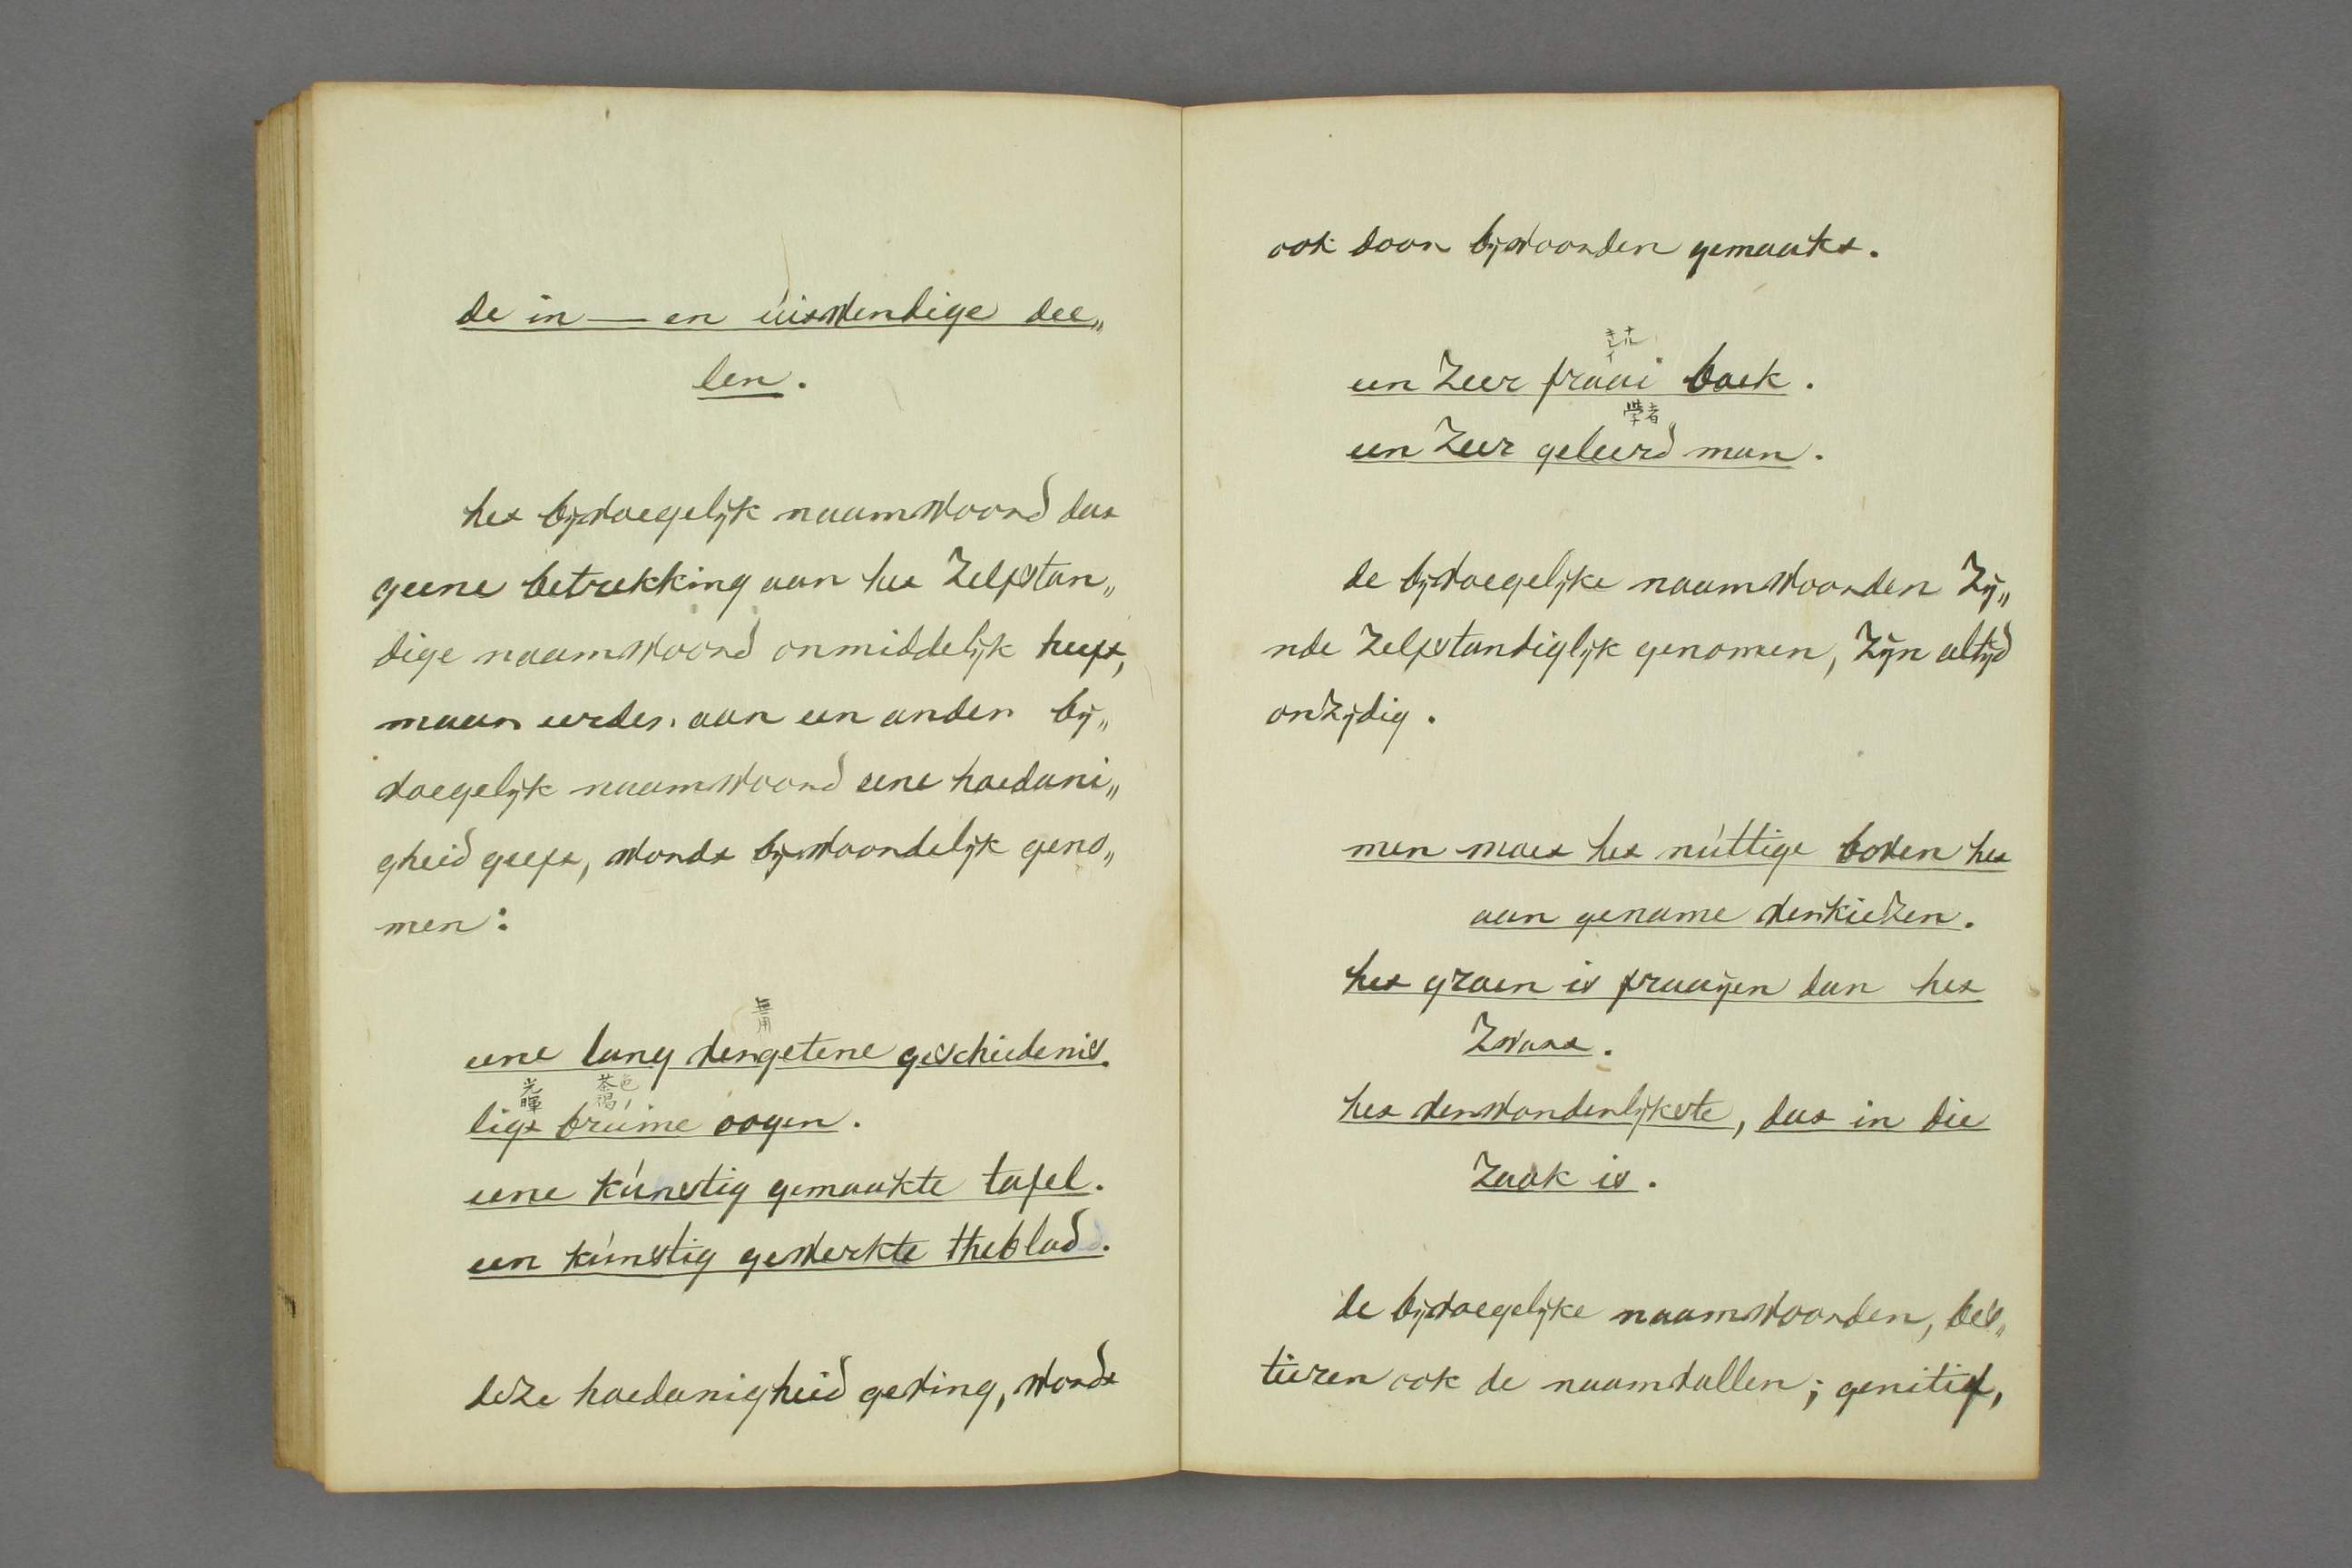 de in — en uitwendige dee„
len.
het bijvoegelijk naamwoord dat
geene betrekking aan het Zelfstan„
dige naamwoord onmiddelijk heeft,
maar eerder aan een ander bij„
voegelijk naamwoord eene hoedani„
gheid geeft, wordt bijwoordelijk geno„
men:
無用
eene lang vergetene geschiedenis.
光暉 茶褐色ノ
ligt bruine oogen.
eene kúnstig gemaakte tafel.
een kúnstig gewerkte theblad.
deze hoedanigheid geving, wordt
ook door bijwoorden gemaakt.
キレイナル
een Zeer fraai boek.
學者
een Zeer geleerd man.
de bijvoegelijke naamwoorden Zij„
nde Zelfstandiglijk genomen, Zijn altijd
onzijdig.
men moet het núttige boven het
aan gename verkiezen.
het groen is fraaijer dan het
Zwart.
het verwonderlijkste, dat in die
Zaak is.
de bijvoegelijke naamwoorden, bes„
tieren ook de naamvallen; genitif,